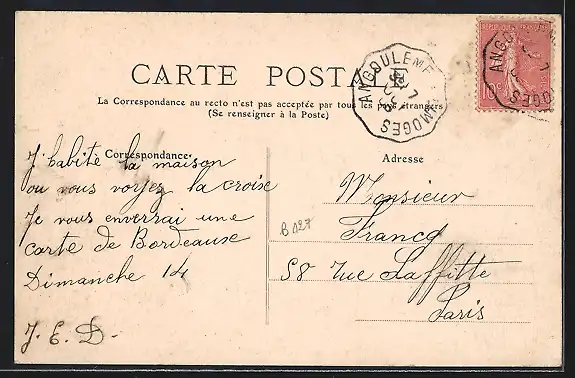 CARTE POSTALE
La Correspondance au recto n'est pas acceptée par tous les pays étrangers
(Se renseigner à la Poste)
Correspondance
J'habite la maison
ou vous voyez la croise
Je vous enverrai une
carte de Bordeause
Dimanche 14
J. E. D.
Adresse
Monsieur
Francq
58 rue Laffitte
Paris
B 127
ANGOULEME
LIMOGES
ANGOU
OGES
10